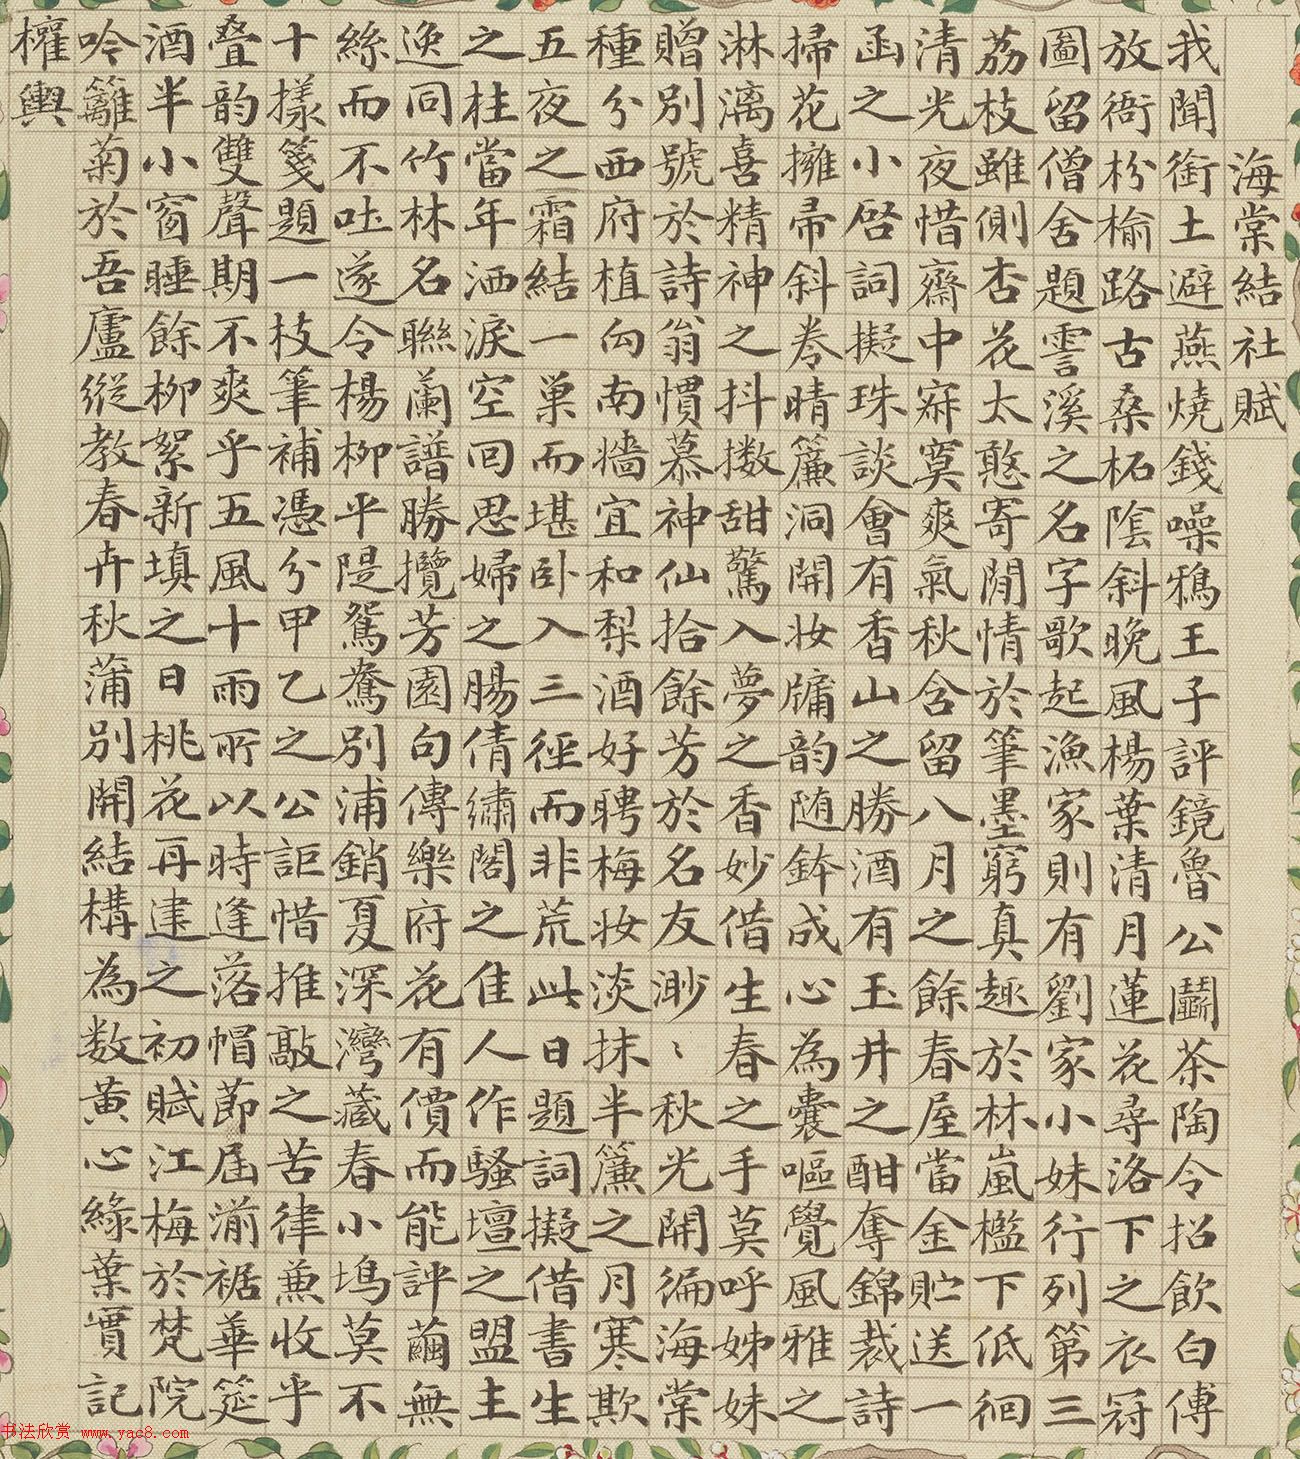 海棠結社賦
我聞銜土避燕燒錢噪鴉王子評鏡魯公鬭茶陶令招飲白傅
放衙枌榆路古桑柘陰斜晚風楊葉清月蓮花尋洛下之衣冠
圖留僧舍題霅溪之名字歌起漁家則有劉家小妹行列第三
荔枝雖側杏花太憨寄閒情於筆墨窮真趣於林嵐檻下低徊
清光夜惜齋中寂寞爽氣秋含留八月之餘春屋當金貯送一
函之小啓詞擬珠談會有香山之勝酒有玉井之酣奪錦裁詩
掃花擁帚斜卷晴簾洞開妝牖韵随鉢成心為囊嘔覺風雅之
淋漓喜精神之抖擻甜驚入夢之香妙借生春之手莫呼姊妹
贈別號於詩翁慣慕神仙拾餘芳於名友渺〻秋光開徧海棠
種分西府植向南墻宜和梨酒好聘梅妝淡抹半簾之月寒欺
五夜之霜結一巢而堪卧入三徑而非荒此日題詞擬借書生
之桂當年洒淚空回思婦之腸倩繡閣之佳人作騷壇之盟主
逸同竹林名聯蘭譜勝攬芳園句傳樂府花有價而能評繭無
絲而不吐遂令楊柳平隄鴛鴦別浦銷夏深灣藏春小塢莫不
十樣箋題一枝筆補憑分甲乙之公詎惜推敲之苦律兼收乎
叠韵雙聲期不爽乎五風十雨所以時逢落帽節屆湔裾華筵
酒半小窗睡餘柳絮新填之日桃花再建之初賦江梅於梵院
吟籬菊於吾廬縱教春卉秋蒲別開結構為数黃心緑葉實記
權輿
书法欣赏 www.yac8.com